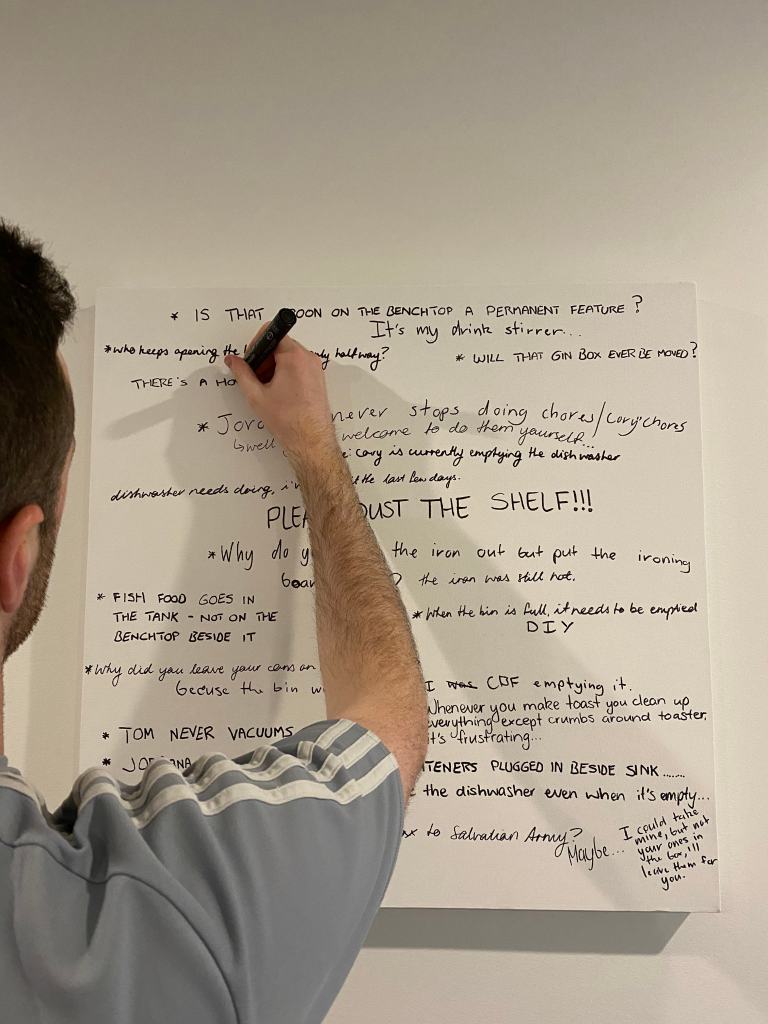 * IS THAT OON ON THE BENCHTOP A PERMANENT FEATURE?
It's my drink stirrer...
* who keeps opening the only halfway?
* WILL THAT GIN BOX EVER BE MOVED?
THERE'S A HO
* Jor never stops doing chores/Cory'chores
↳well welcome to do them yourself...
e: Cory is currently emptying the dishwasher
dishwasher needs doing, i'v t the last few days.
PLEA DUST THE SHELF!!!
* Why do y the iron out but put the ironing
boar ? the iron was still hot.
* FISH FOOD GOES IN
THE TANK - NOT ON THE
BENCHTOP BESIDE IT
* When the bin is full, it needs to be emptied
DIY
* Why did you leave your cans on
Becuse the bin w
I was CBF emptying it.
Whenever you make toast you clean up
everything except crumbs around toaster,
it's frustrating...
* TOM NEVER VACUUMS
* JO ANA
TENERS PLUGGED IN BESIDE SINK.......
the dishwasher even when it's empty...
ox to Salvatian Army?
Maybe...
I could take
mine, but not
your ones in
the box, i'll
leave them for
you.